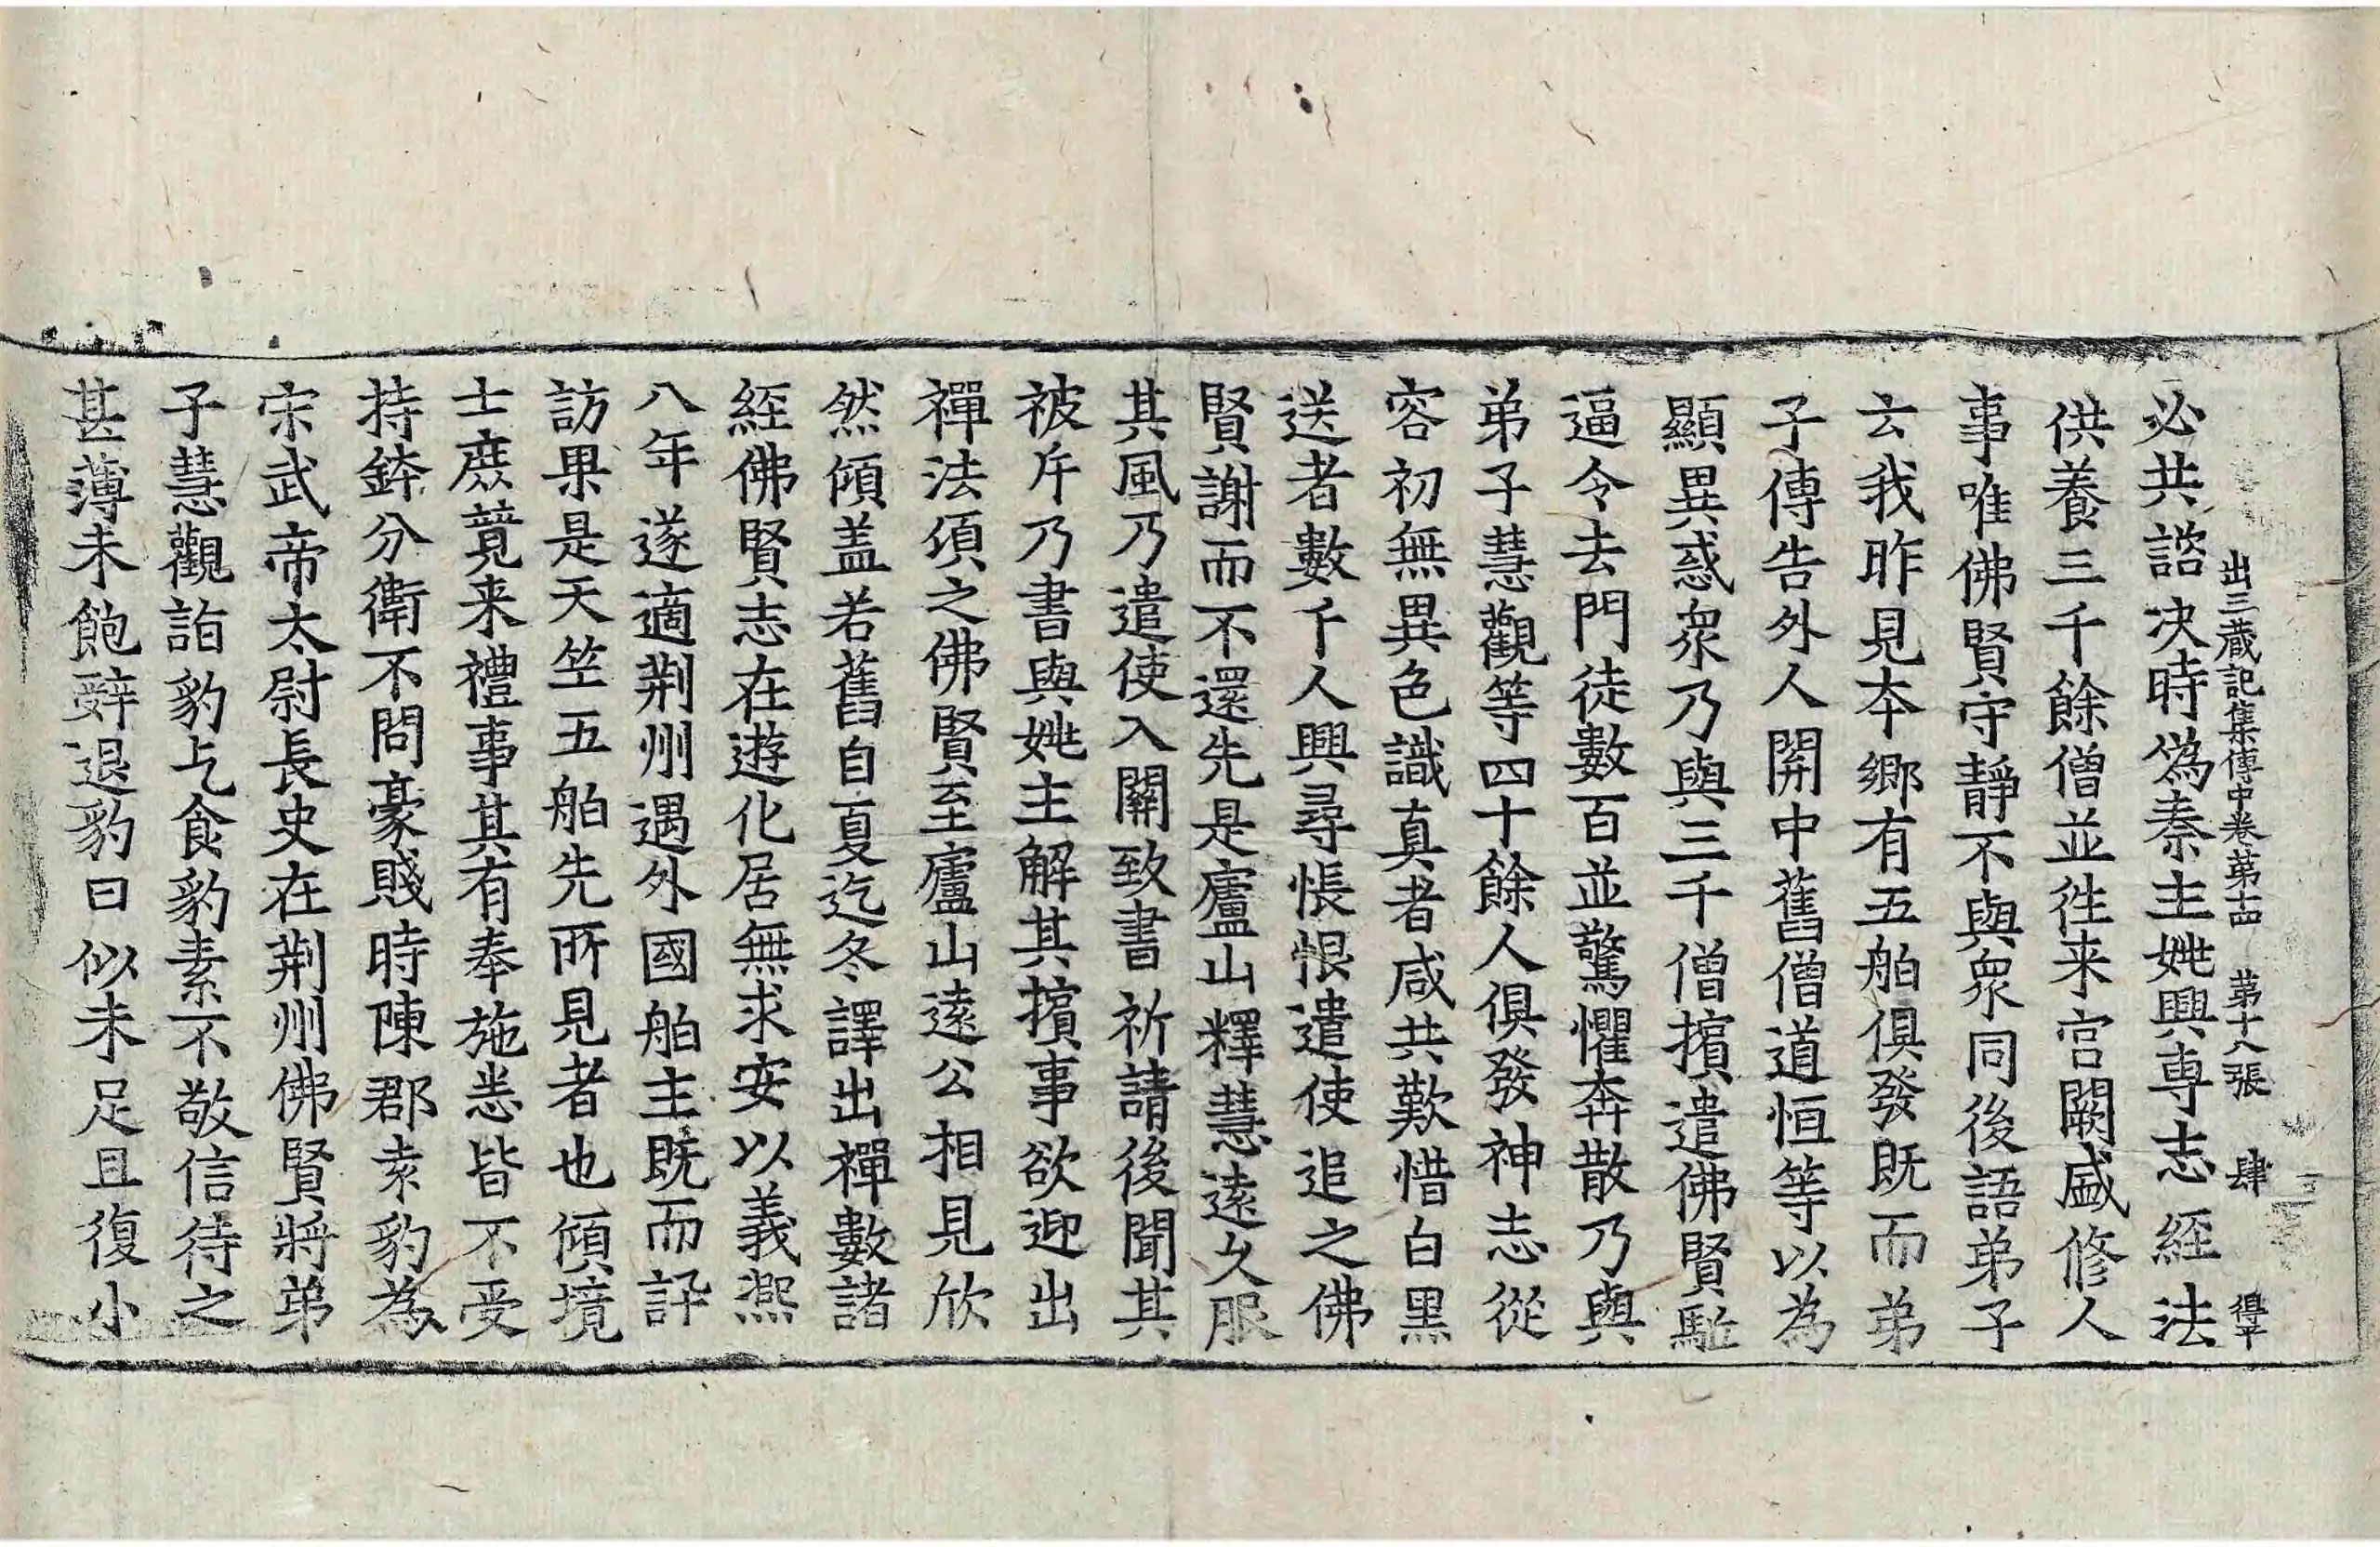 出三蔵記集傳中卷第十四 第十八張 肆 得平
必共諮決時偽秦主姚興專志經法
供養三千餘僧並往来宮闕盛修人
事唯佛賢守靜不與衆同後語弟子
云我昨見本鄉有五舶俱發既而弟
子傳告外人関中舊僧道恒等以為
顯異惑衆乃與三千僧擯遣佛賢駈
逼令去門徒數百並驚懼奔散乃與
弟子慧觀等四十餘人俱發神志從
容初無異色識真者咸共歎惜白黑
送者數千人興尋悵恨遣使追之佛
賢謝而不還先是廬山釋慧遠久服
其風乃遣使入關致書祈請後聞其
被斥乃書與姚主解其擯事欲迎出
禪法頃之佛賢至廬山遠公相見欣
然傾盖若舊自夏迄冬譯出禪數諸
經佛賢志在遊化居無求安以義熙
八年遂適荆州遇外國舶主既而訊
訪果是天竺五舶先所見者也傾境
士庶競来禮事其有奉施悉皆不受
持鉢分衛不問豪賤時陳郡袁豹為
宋武帝太尉長史在荆州佛賢將弟
子慧觀詣豹乞食豹素不敬信待之
甚薄未飽辞退豹曰似未足且復小